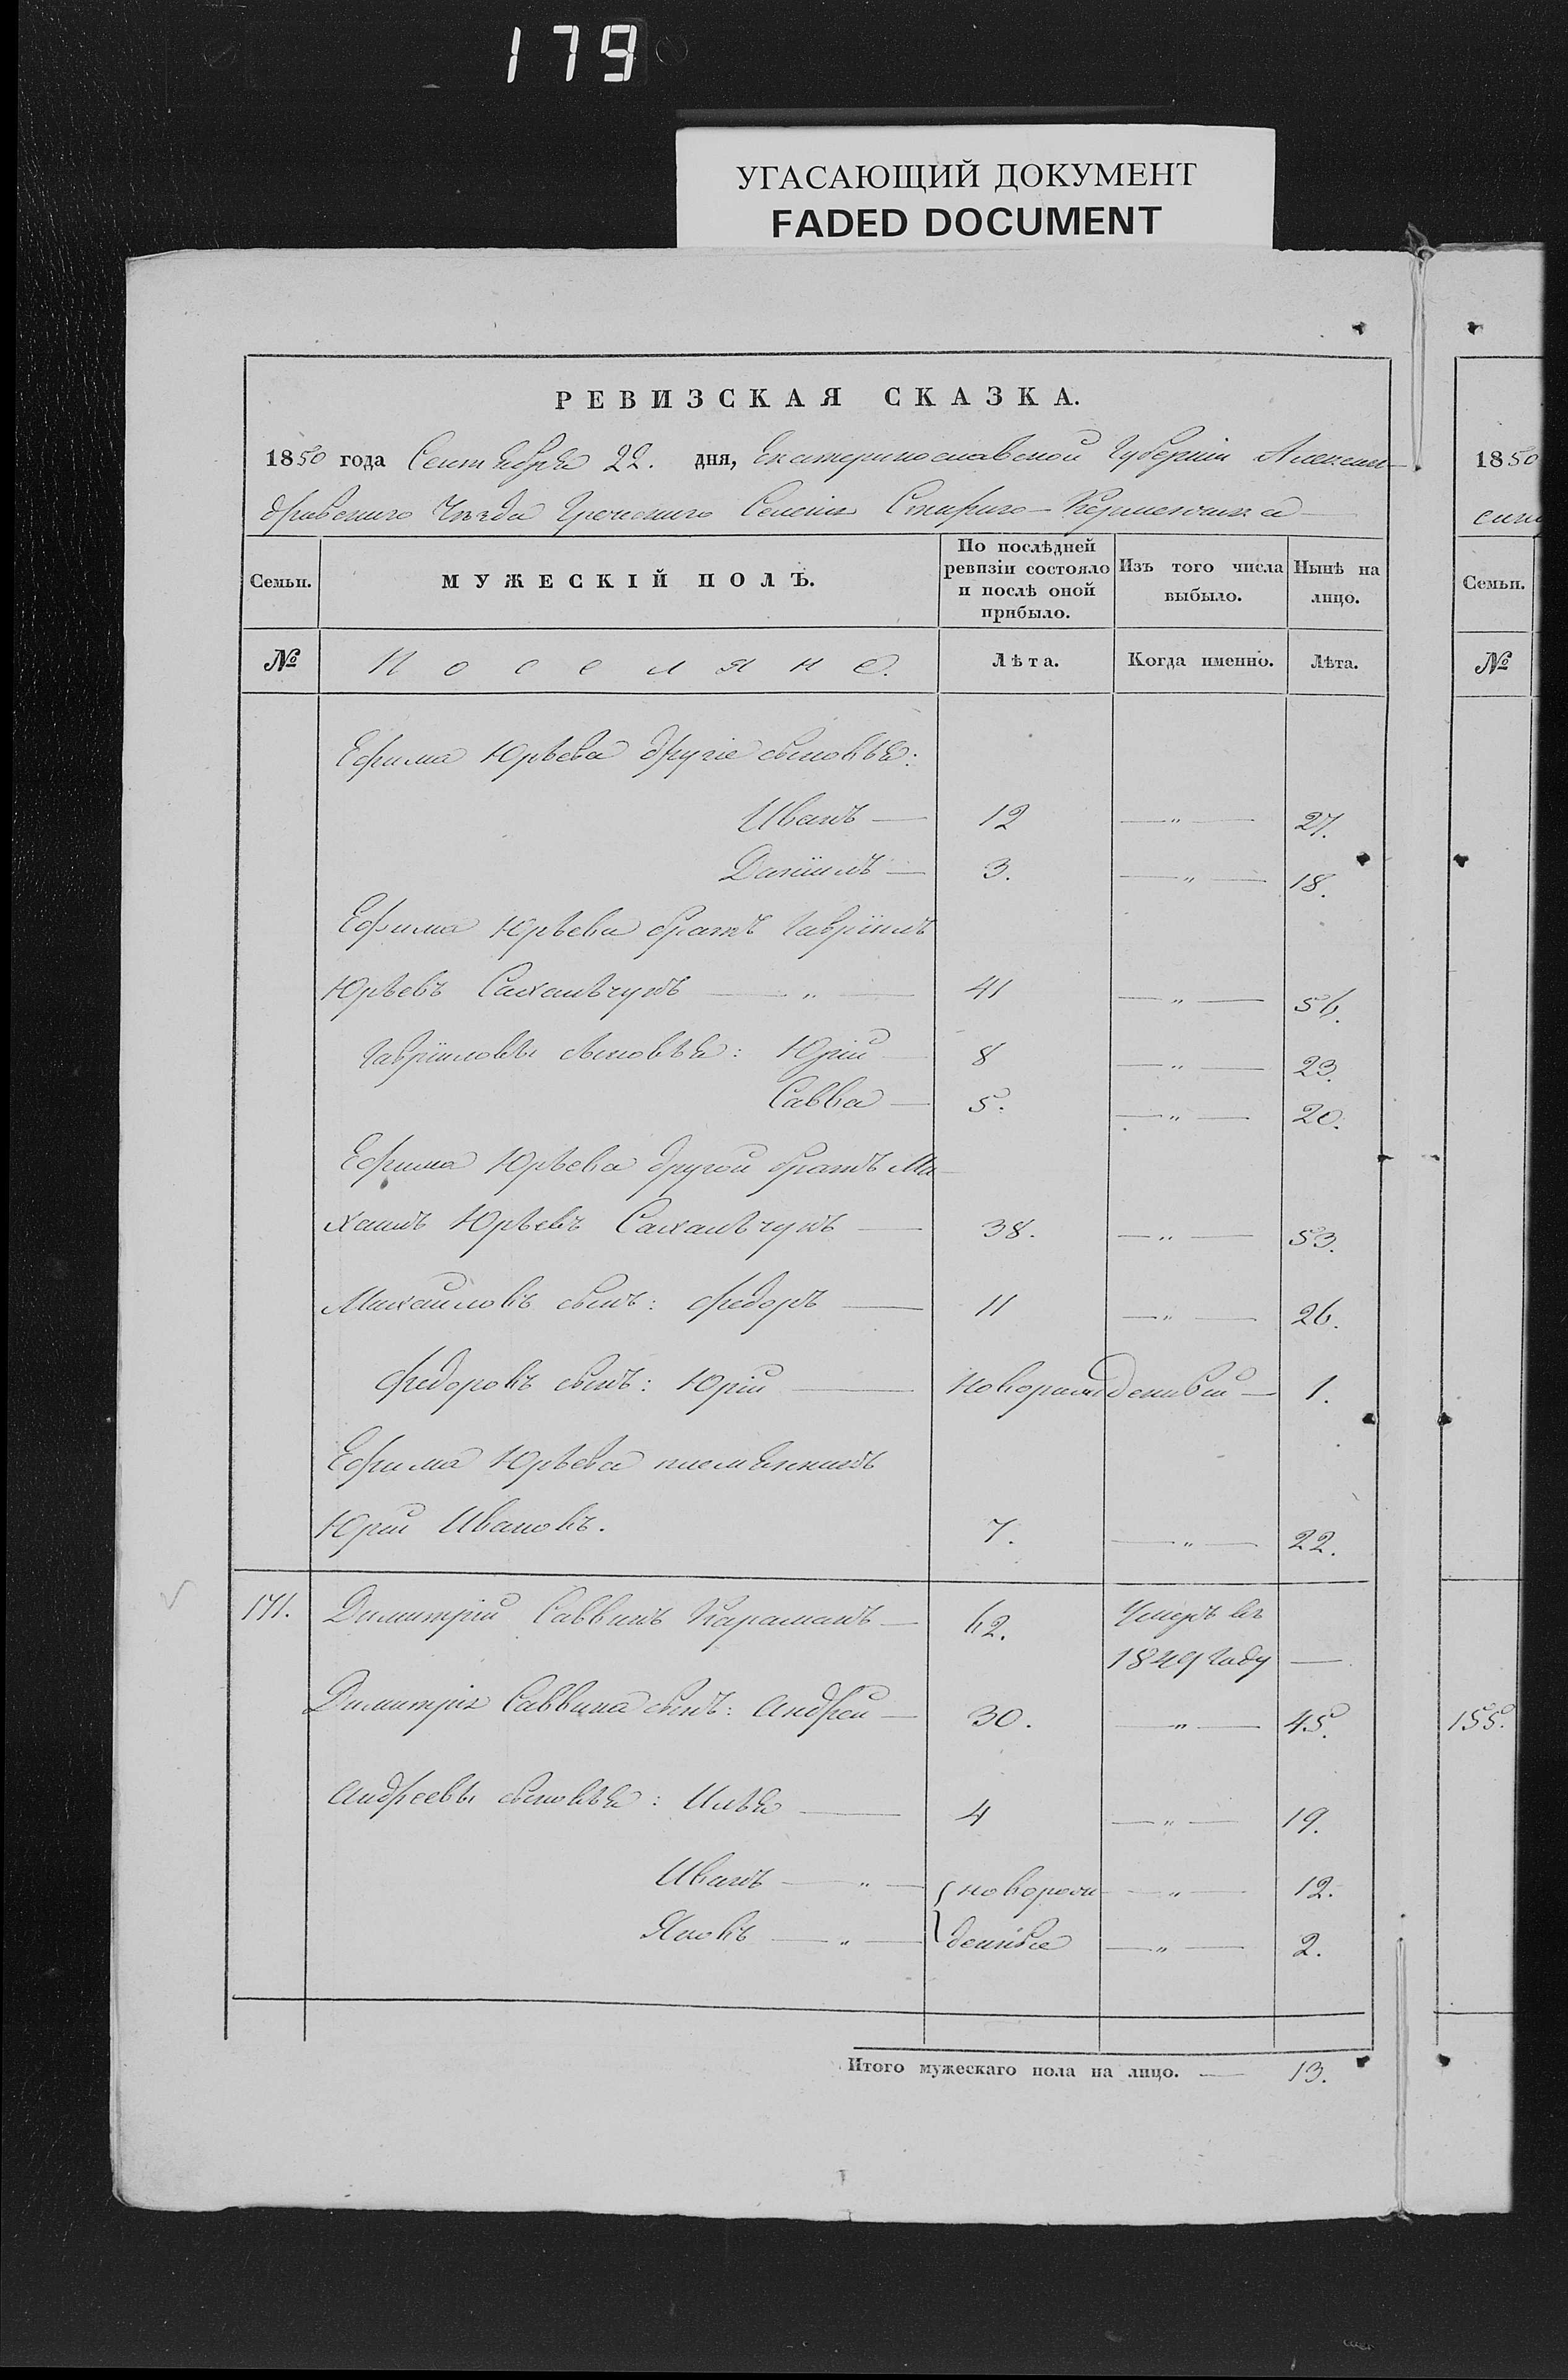 179
УГАСАЮЩИЙ ДОКУМЕНТ
FADED DOCUMENT
РЕВИЗСКАЯ СКАЗКА.
1850 года Сентября 22. дня, Екатеринославской Губерніи Алексан-
дровскаго Уѣзда Греческаго Селенія Стараго-Керменчика
Семьи. МУЖЕСКІЙ ПОЛЪ. По послѣдней ревизіи состояло и послѣ оной прибыло. Изъ того числа выбыло. Нынѣ на лицо.
№ Поселяне. Лѣта. Когда именно. Лѣта.
Ефима Юрьева другіе сыновья:
Иванъ — 12 — " — 27.
Даніилъ — 3. — " — 18.
Ефима Юрьева братъ Гавріилъ
Юрьевъ — " — 41 — " — 56.
Гавріиловы сыновья: Юрій 8 — " — 23.
Савва — 5. — " — 20.
Ефима Юрьева другой братъ Ми-
хаилъ Юрьевъ — 38. — " — 53.
Михаиловъ сынъ: Федоръ — 11 — " — 26.
Федоровъ сынъ: Юрій — новорожденный — 1.
Ефима Юрьева племянникъ
Юрій Ивановъ. 7. — " — 22.
171. Димитрій Саввинъ Караманъ — 62. Умеръ въ
1849 году —
Димитрія Саввина сынъ: Андрей — 30. — " — 45.
Андреевы сыновья: Илья — 4 — " — 19.
Иванъ — " — новорож- — " — 12.
Яковъ — " — денные — " — 2.
Итого мужескаго пола на лицо. — 13.
1850
Семьи.
№
155.